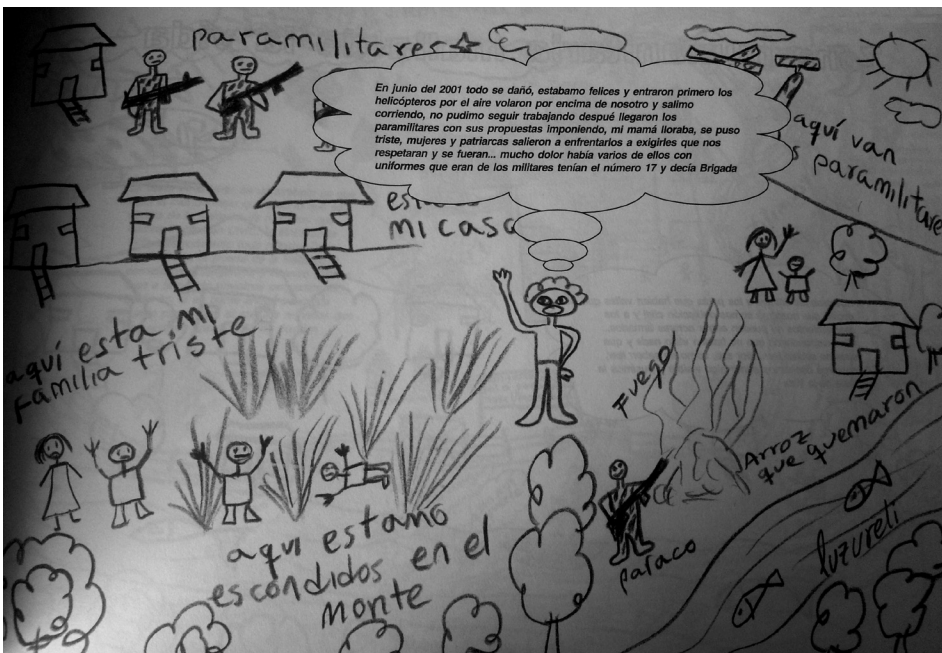 paramilitares
En junio del 2001 todo se dañó, estabamo felices y entraron primero los
helicópteros por el aire volaron por encima de nosotro y salimo
corriendo, no pudimo seguir trabajando despué llegaron los
paramilitares con sus propuestas imponiendo, mi mamá lloraba, se puso
triste, mujeres y patriarcas salieron a enfrentarlos a exigirles que nos
respetaran y se fueran... mucho dolor había varios de ellos con
uniformes que eran de los militares tenían el número 17 y decía Brigada
aquí van
paramilitare
mi casa
aquí esta mi
familia triste
Fuego
Arroz
que quemaron
aqui estamo
escondidos en el
monte
paraco
luzureti